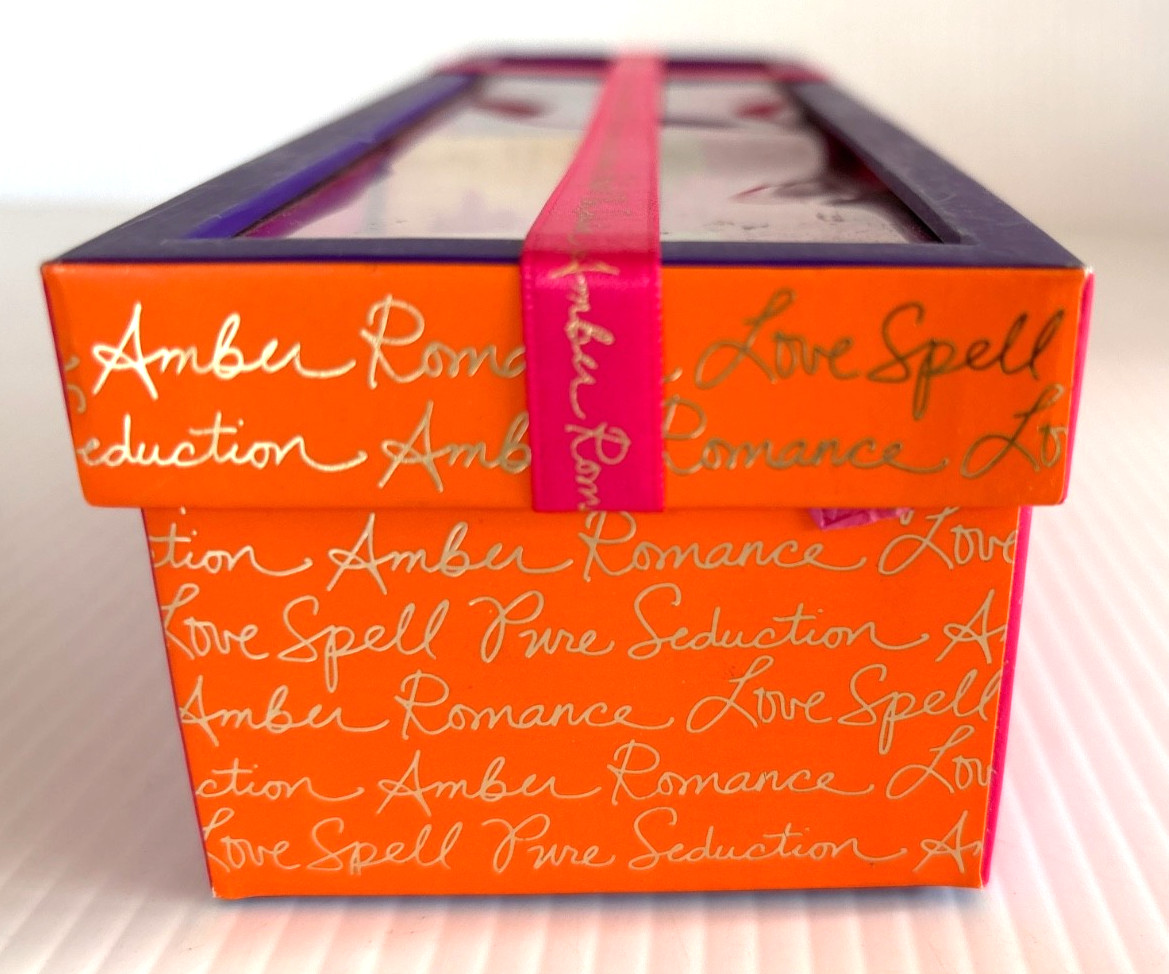 Amber Roman Love Spell
eduction Amb Romance Lo
Amber Rom
tion Amber Romance Love
Love Spell Pure Seduction A
Amber Romance Love Spell
ction Amber Romance Lov
Love Spell Pure Seduction A